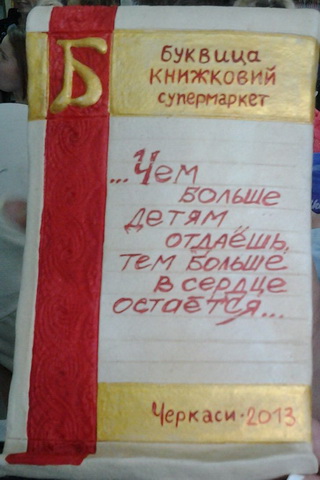 Б
Буквица
книжковий
супермаркет
...Чем
больше
детям
отдаёшь,
тем больше
в сердце
остаётся...
Черкаси·2013